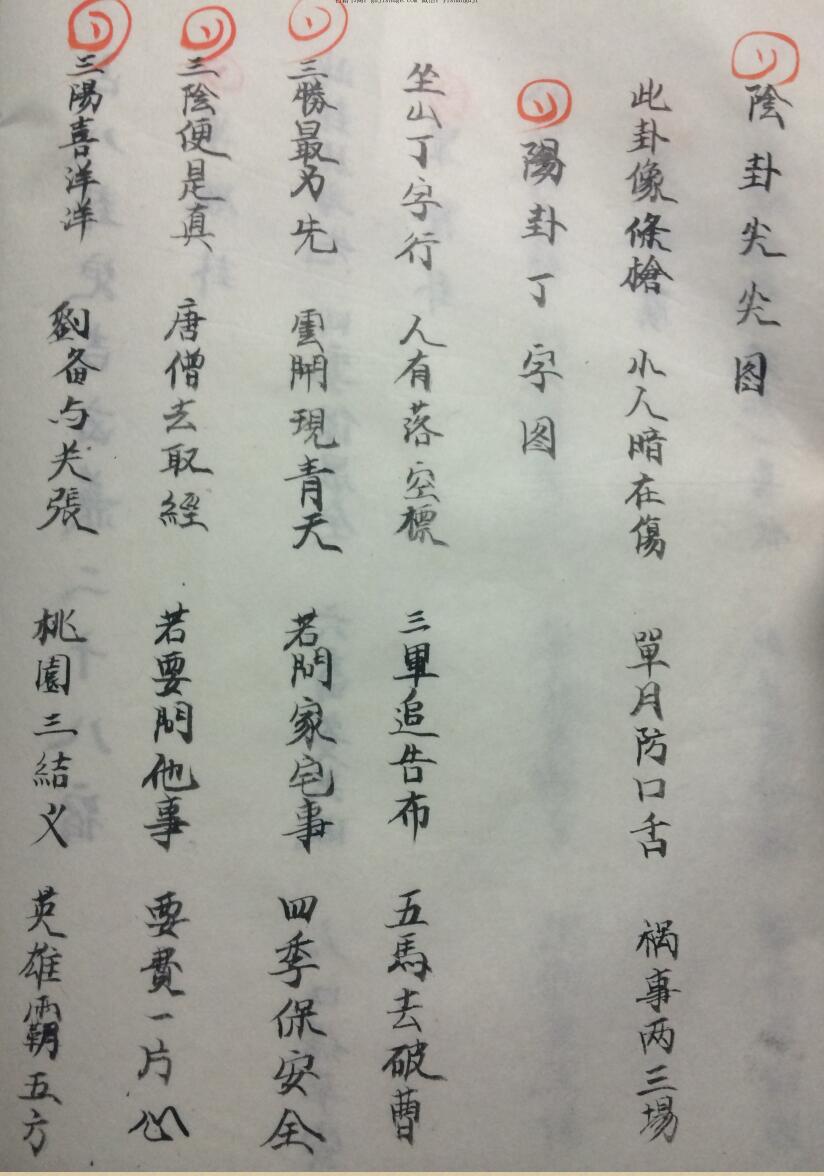 陰卦尖尖图
此卦像條槍 小人暗在傷 單月防口舌 禍事两三場
陽卦丁字图
坐山丁字行 人有落空標 三軍追告布 五馬去破曹
三勝最为先 雲開現青天 若問家宅事 四季保安全
三陰便是真 唐僧去取經 若要問他事 要費一片心
三陽喜洋洋 劉备与关張 桃園三結义 英雄霸五方